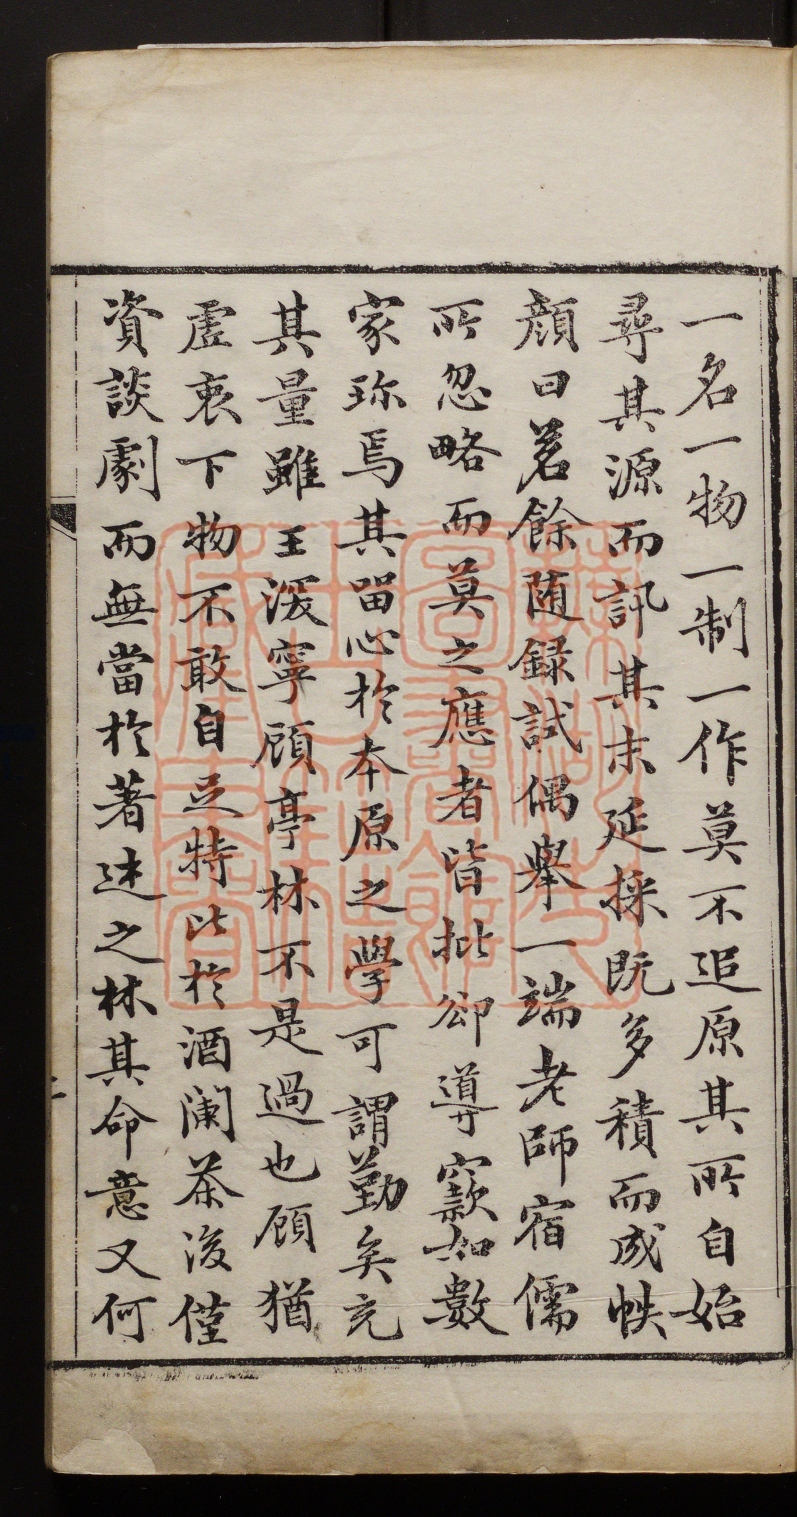 一名一物一制一作莫不追原其所自始
尋其源而訊其末延採既多積而成帙
顔曰茗餘随録試偶舉一端老師宿儒
所忽略而莫之應者皆批郤導窾如數
家珎焉其畱心於本原之學可謂勤矣充
其量雖王深寧顧亭林不是過也顧猶
虚衷下物不敢自足特比於酒闌茶後僅
資談劇而無當於著述之林其命意又何